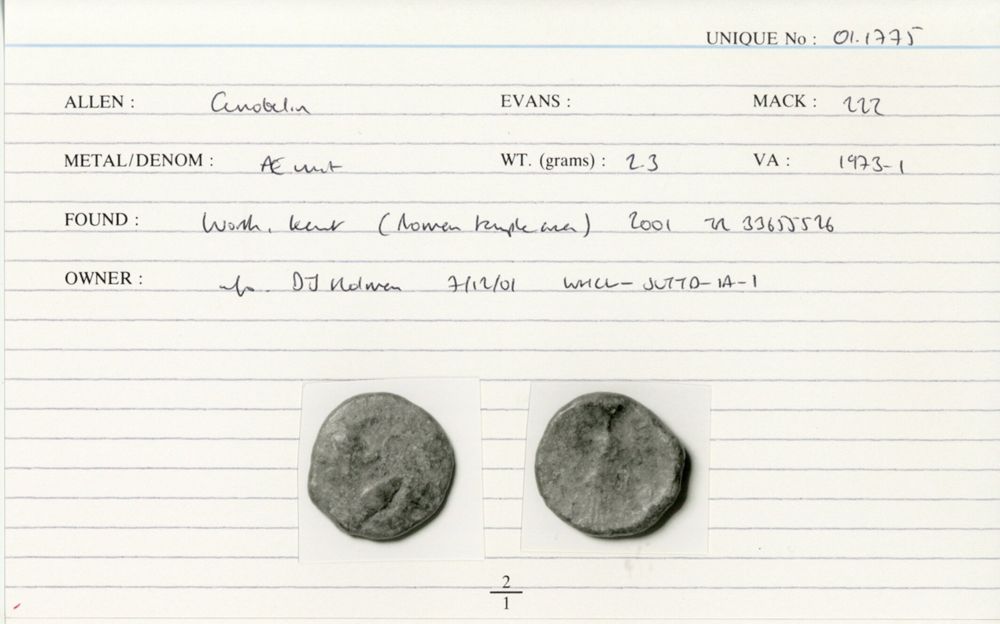 UNIQUE No : 01.1775
ALLEN : Cunobelin EVANS : MACK : 222
METAL/DENOM : Æ unit WT. (grams) : 2.3 VA : 1973-1
FOUND : Worth, Kent (Roman temple area) 2001 TR 33655526
OWNER : info. DJ Holman 7/12/01 IA-1
2
1